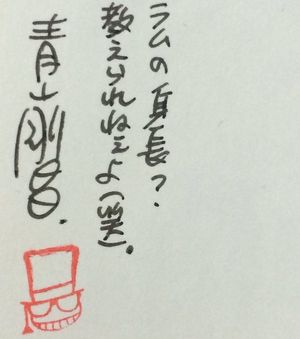 ラムの身長？
教えられねぇよ（笑）。
青山剛昌.